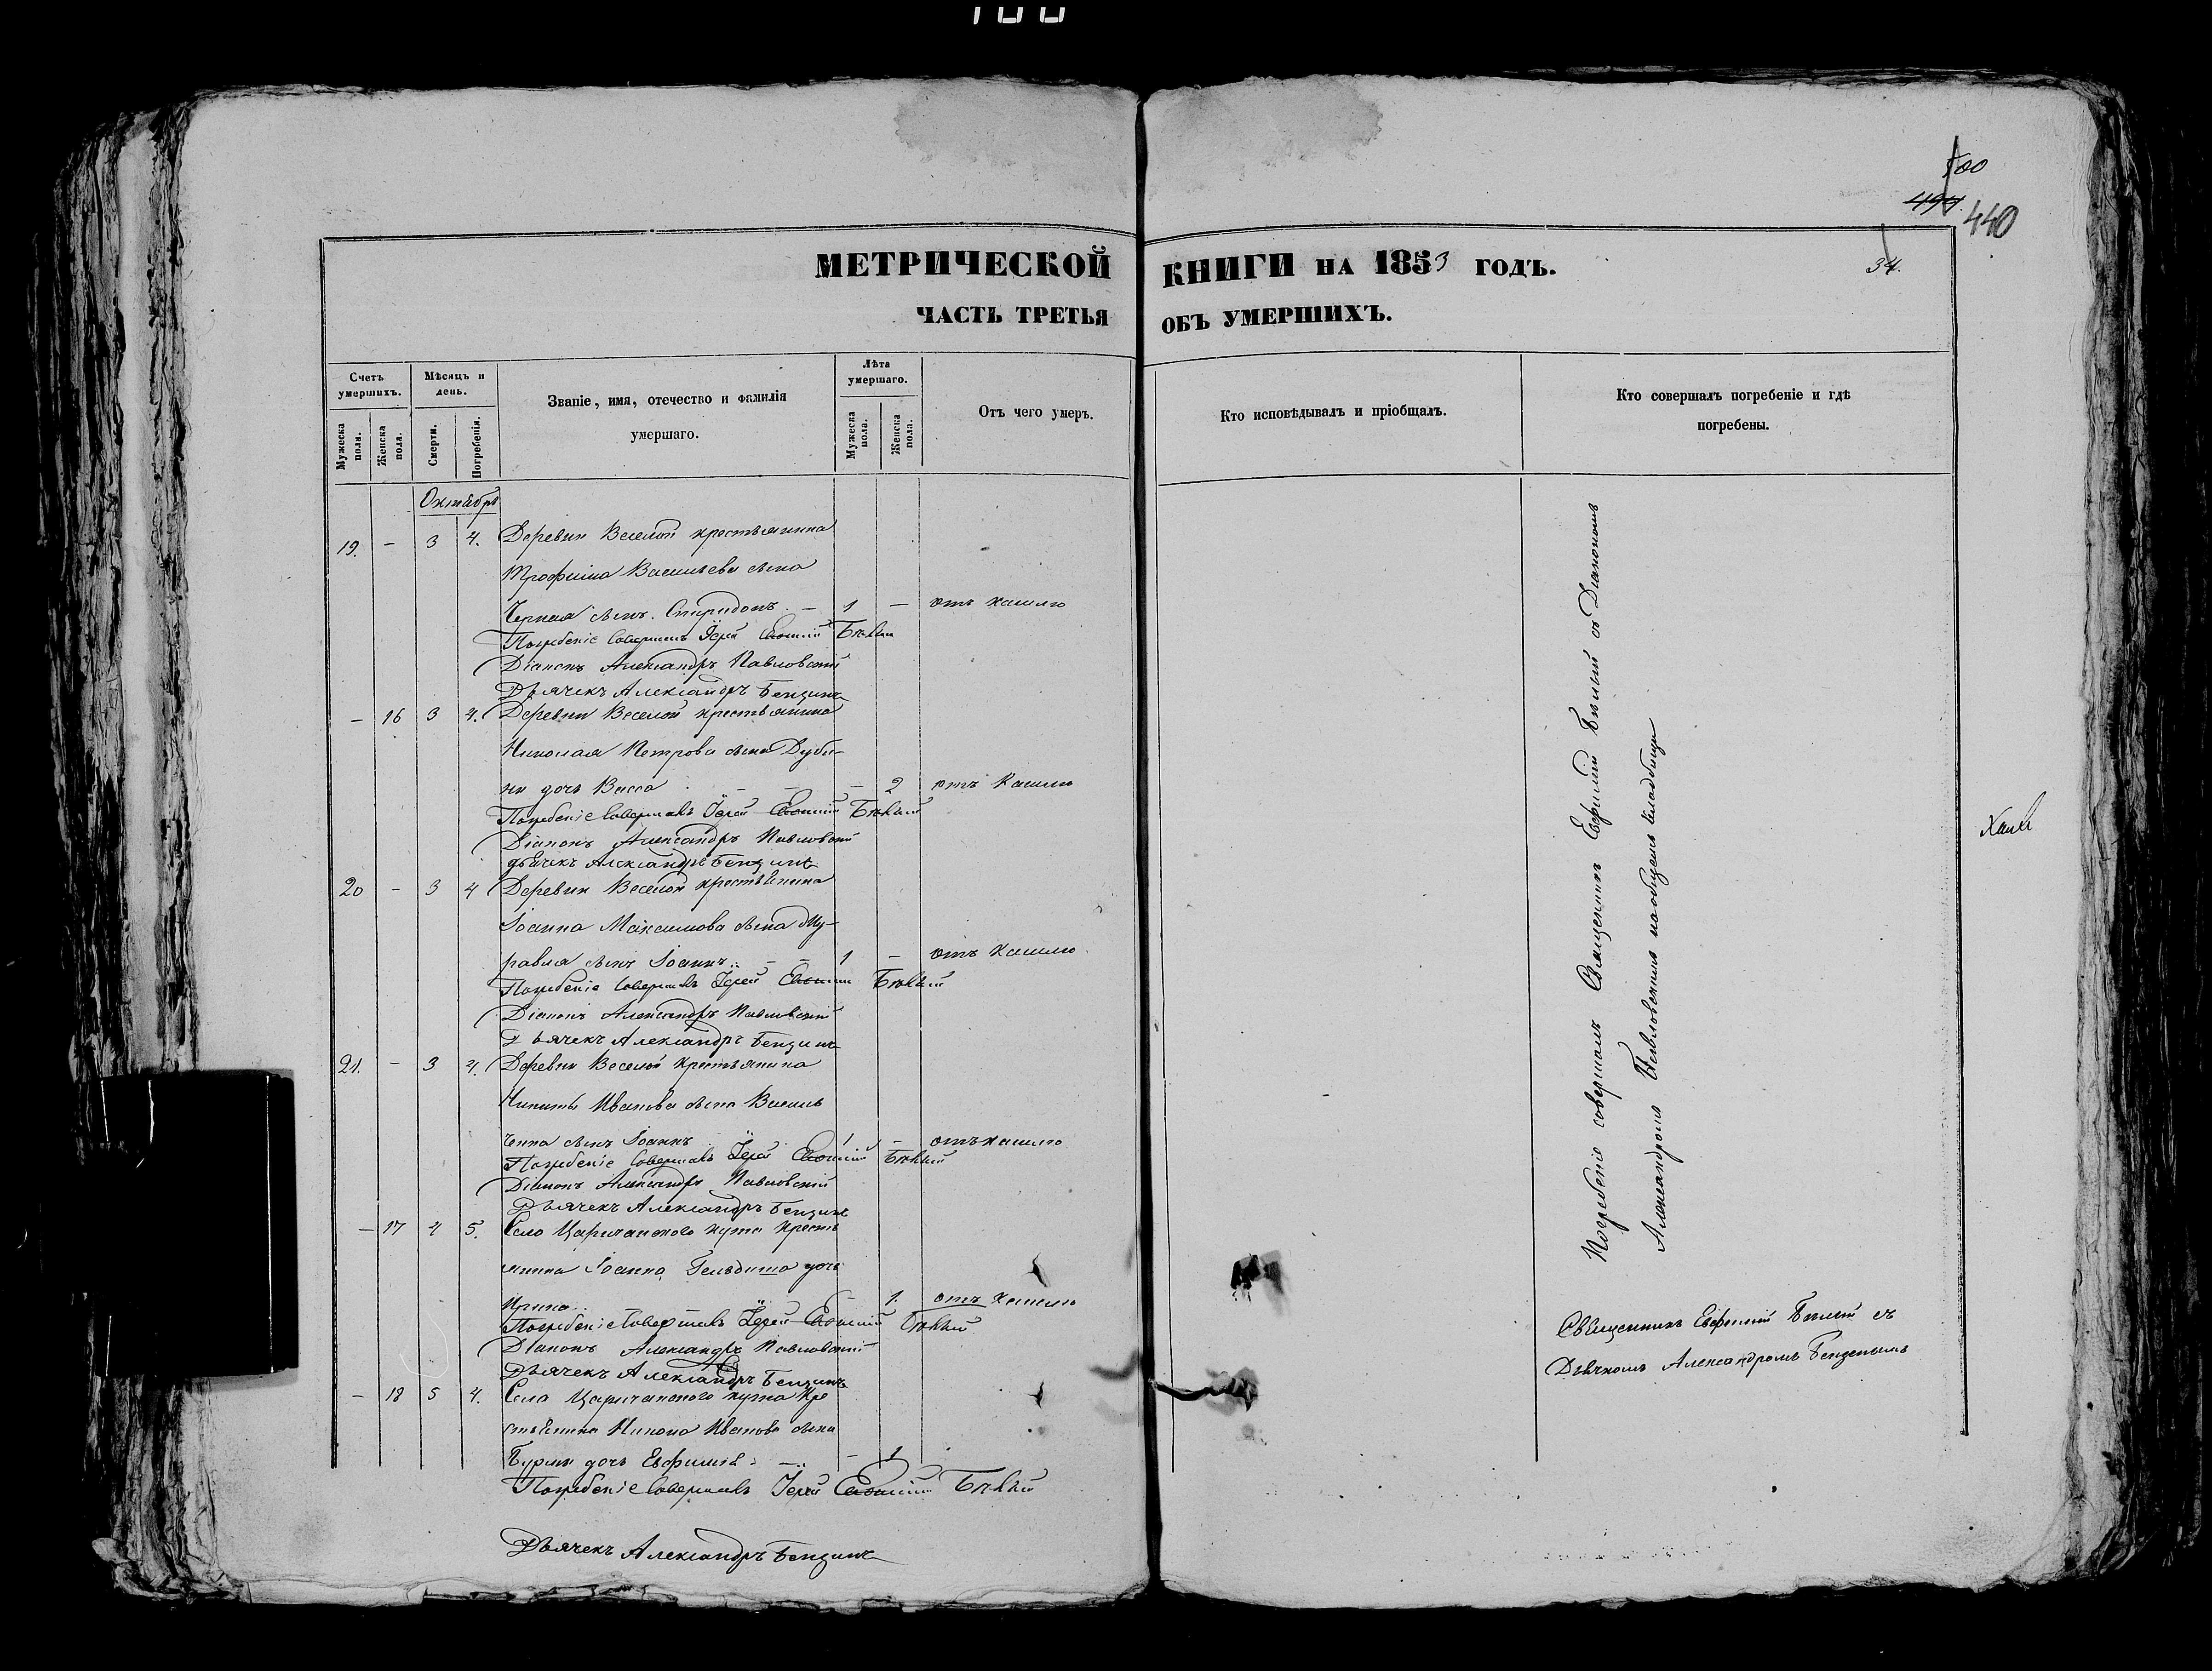 100
500
499.
440
МЕТРИЧЕСКОЙ КНИГИ НА 1853 ГОДЪ.
34.
ЧАСТЬ ТРЕТЬЯ ОБЪ УМЕРШИХЪ.
Счетъ умершихъ.
Мѣсяцъ и день.
Званіе, имя, отечество и фамилія умершаго.
Лѣта умершаго.
Отъ чего умеръ.
Кто исповѣдывалъ и пріобщалъ.
Кто совершалъ погребеніе и гдѣ погребены.
Мужеска пола.
Женска пола.
Смерти.
Погребенія.
Мужеска пола.
Женска пола.
Октября
19. — 3 4. Деревни Веселой крестьянина
Трофима Васильева сына
Черная сынъ Спиридонъ — 1 — отъ кашлю
Погребеніе совершалъ Іерей Евфимій Бѣлый
Діаконъ Александръ Павловскій
Дьячекъ Александръ Бензинъ
— 16 3 4. Деревни Веселой крестьянина
Николая Петрова сына Дуби-
ни дочь Васса — — — 2 отъ кашлю
Погребеніе совершалъ Іерей Евфимій Бѣлый
Діаконъ Александръ Павловскій
дьячекъ Александръ Бензинъ
20 — 3 4 Деревни Веселой крестьянина
Іоанна Максимова сына Му-
равля сынъ Іоаннъ — — 1 — отъ кашлю
Погребеніе совершалъ Іерей Евфимій Бѣлый
Діаконъ Александръ Павловскій
Дьячекъ Александръ Бензинъ
21. — 3 4. Деревни Веселой крестьянина
Никиты Иванова сына Василь
ченка сынъ Іоаннъ 1 — отъ кашлю
Погребеніе совершалъ Іерей Евфимій Бѣлый
Діаконъ Александръ Павловскій
Дьячекъ Александръ Бензинъ
— 17 4 5. Село Царичанского кута кресть
янина Іоанна дочь
Ирина — 1. отъ кашлю
Погребеніе совершалъ Іерей Евфимій Бѣлый
Діаконъ Александръ Павловскій
Дьячекъ Александръ Бензинъ
— 18 5 4. Села Царичанского кута кре
стьянина Никона Иванова сына
дочь Евфимія — — 1
Погребеніе совершалъ Іерей Евфимій Бѣлый
Дьячекъ Александръ Бензинъ
Погребеніе совершалъ Священникъ Евфимій Бѣлый съ Діакономъ
Александромъ Павловскимъ на общемъ кладбищѣ
Священникъ Евфимій Бѣлый съ
Дьячкомъ Александромъ Бензенымъ